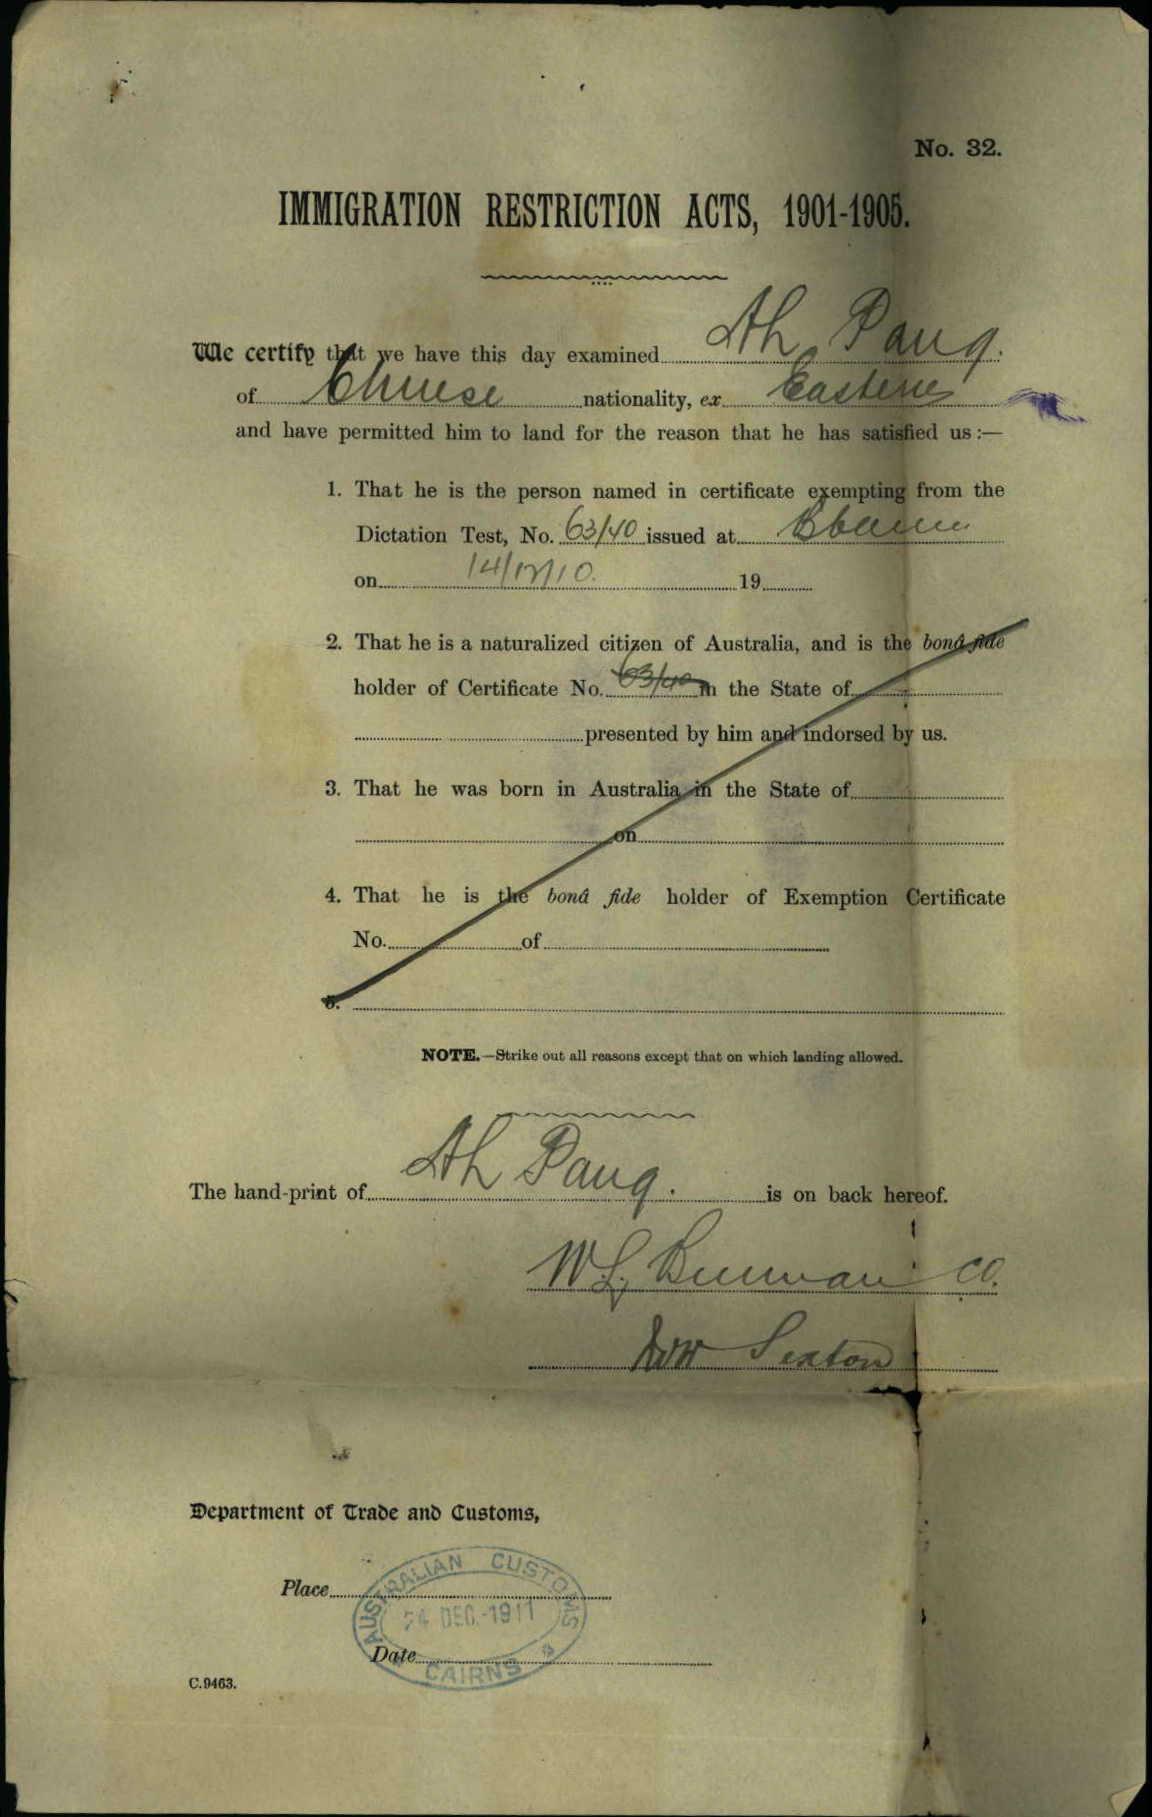 No. 32.
IMMIGRATION RESTRICTION ACTS, 1901-1905.
We certify that we have this day examined Ah Pang.
of Chinese nationality, ex Eastern
and have permitted him to land for the reason that he has satisfied us:—
1. That he is the person named in certificate exempting from the
Dictation Test, No. 63/40 issued at Bbane
on 14/12/10. 19
2. That he is a naturalized citizen of Australia, and is the bonâ fide
holder of Certificate No. 63/40 in the State of
presented by him and indorsed by us.
3. That he was born in Australia in the State of
on
4. That he is the bonâ fide holder of Exemption Certificate
No. of
5.
NOTE.—Strike out all reasons except that on which landing allowed.
The hand-print of Ah Pang. is on back hereof.
W L CO.
Sexton
Department of Trade and Customs,
Place
AUSTRALIAN CUSTOMS
24 DEC.-1911
Date
CAIRNS
C.9463.